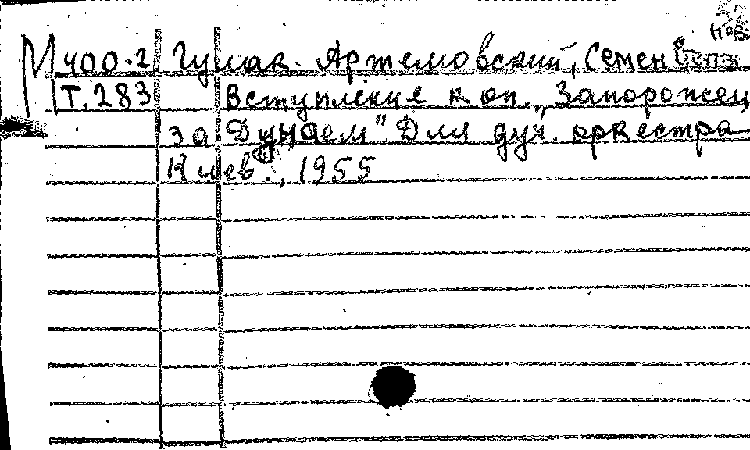 М 400.2 Гулак-Артемовский, Семен
Т.283 Вступление к оп. „Запорожец
за Дунаем". Для дух. оркестра
Киев., 1955